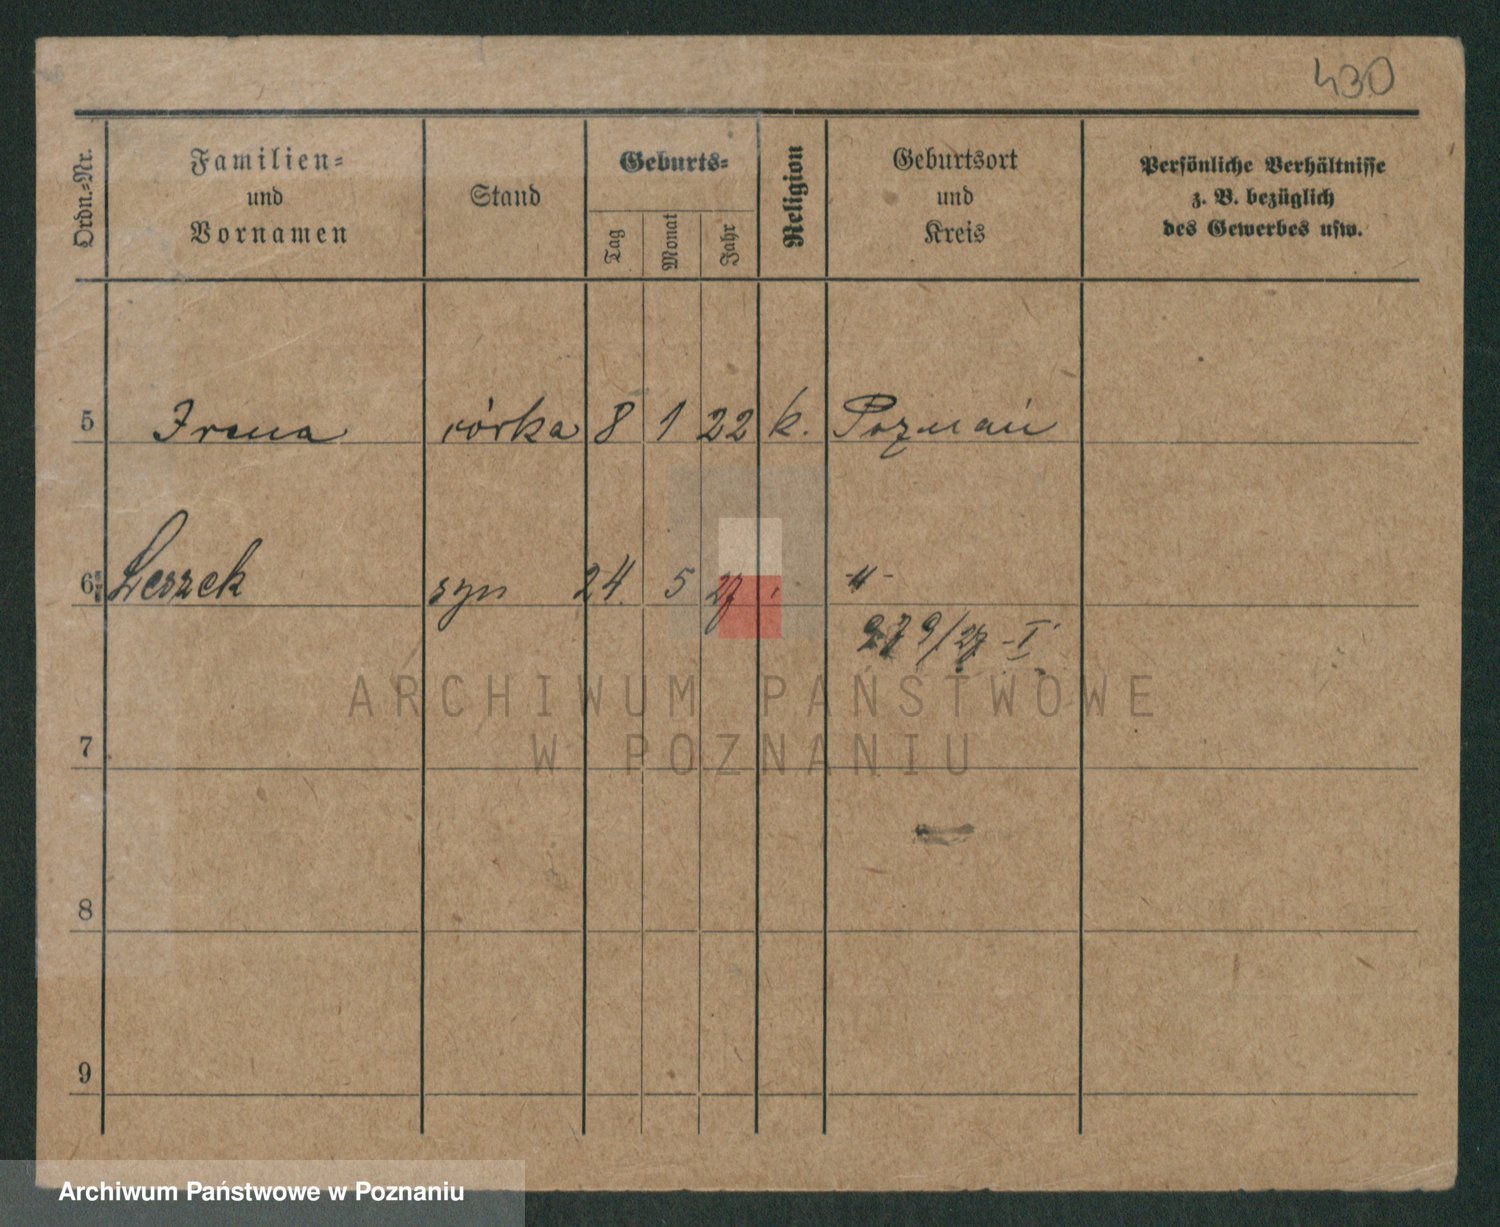 430
Ordn.=Nr.
Familien=
und
Vornamen
Stand
Geburts=
Tag
Monat
Jahr
Religion
Geburtsort
und
Kreis
Persönliche Verhältnisse
z. B. bezüglich
des Gewerbes usw.
5 Irena córka 8 1 22 k. Poznań
6 Leszek syn 24. 5 27 -"-
279/27 - I
ARCHIWUM PAŃSTWOWE
W POZNANIU
7
8
9
Archiwum Państwowe w Poznaniu